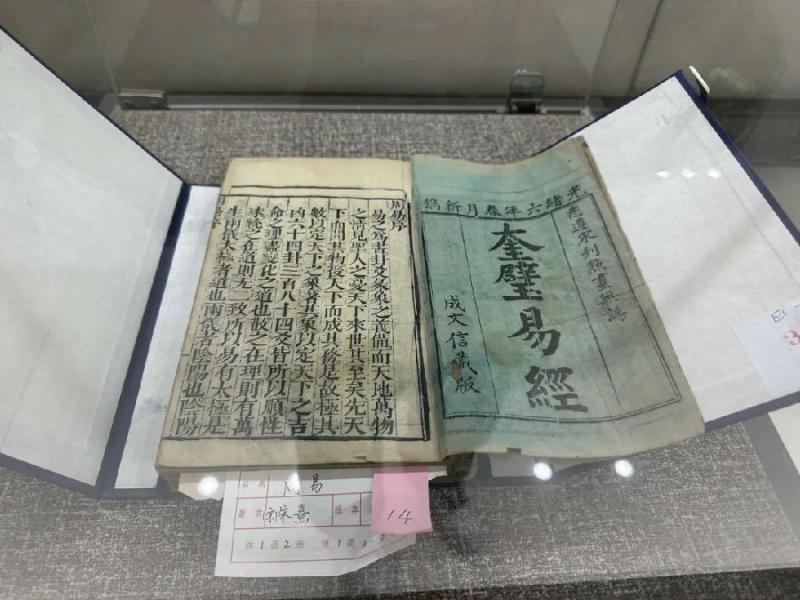 光緒六年春月新鐫
悉遵刊點畫無
奎璧易經
成文信藏版
周易序
易之爲書卦爻彖象之義備而天地萬物
之情見聖人之憂天下來世其至矣先天
下而開其物後天下而成其務是故極其
數以定天下之象著其象以定天下之吉
凶六十四卦三百八十四爻皆所以順性
命之理盡變化之道也散之在理則有萬
殊統之在道則无二致所以易有太極是
生兩儀太極者道也兩儀者陰陽也陰陽
易序
書名 周易
著者 朱熹 版本
14
共1函2册 第1函1
3